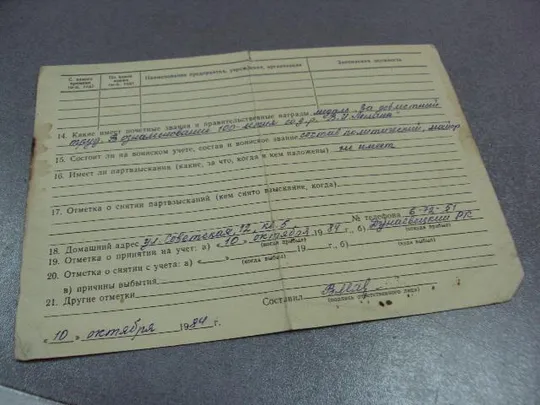 С какого времени (м-ц, год) По какое время (м-ц, год) Наименование предприятия, учреждения, организации Занимаемая должность
14. Какие имеет почетные звания и правительственные награды медаль „За доблестный
труд. В ознаменование 100-летия со д.р. В.И. Ленина"
15. Состоит ли на воинском учете, состав и воинское звание состав политический, майор
16. Имеет ли партвзыскания (какие, за что, когда и кем наложены) не имеет
17. Отметка о снятии партвзысканий (кем снято взыскание, когда)
№ телефона 6-72-51
18. Домашний адрес ул. Советская, 12, кв. 5
19. Отметка о принятии на учет: а) «10» октября 1984 г. б) Дунаевецкий РК
(когда прибыл) (откуда прибыл)
20. Отметка о снятии с учета: а) « » 19 г. б)
(когда выбыл) (куда выбыл)
в) причины выбытия
21. Другие отметки
Составил
(подпись ответственного лица)
«10» октября 1984 г.